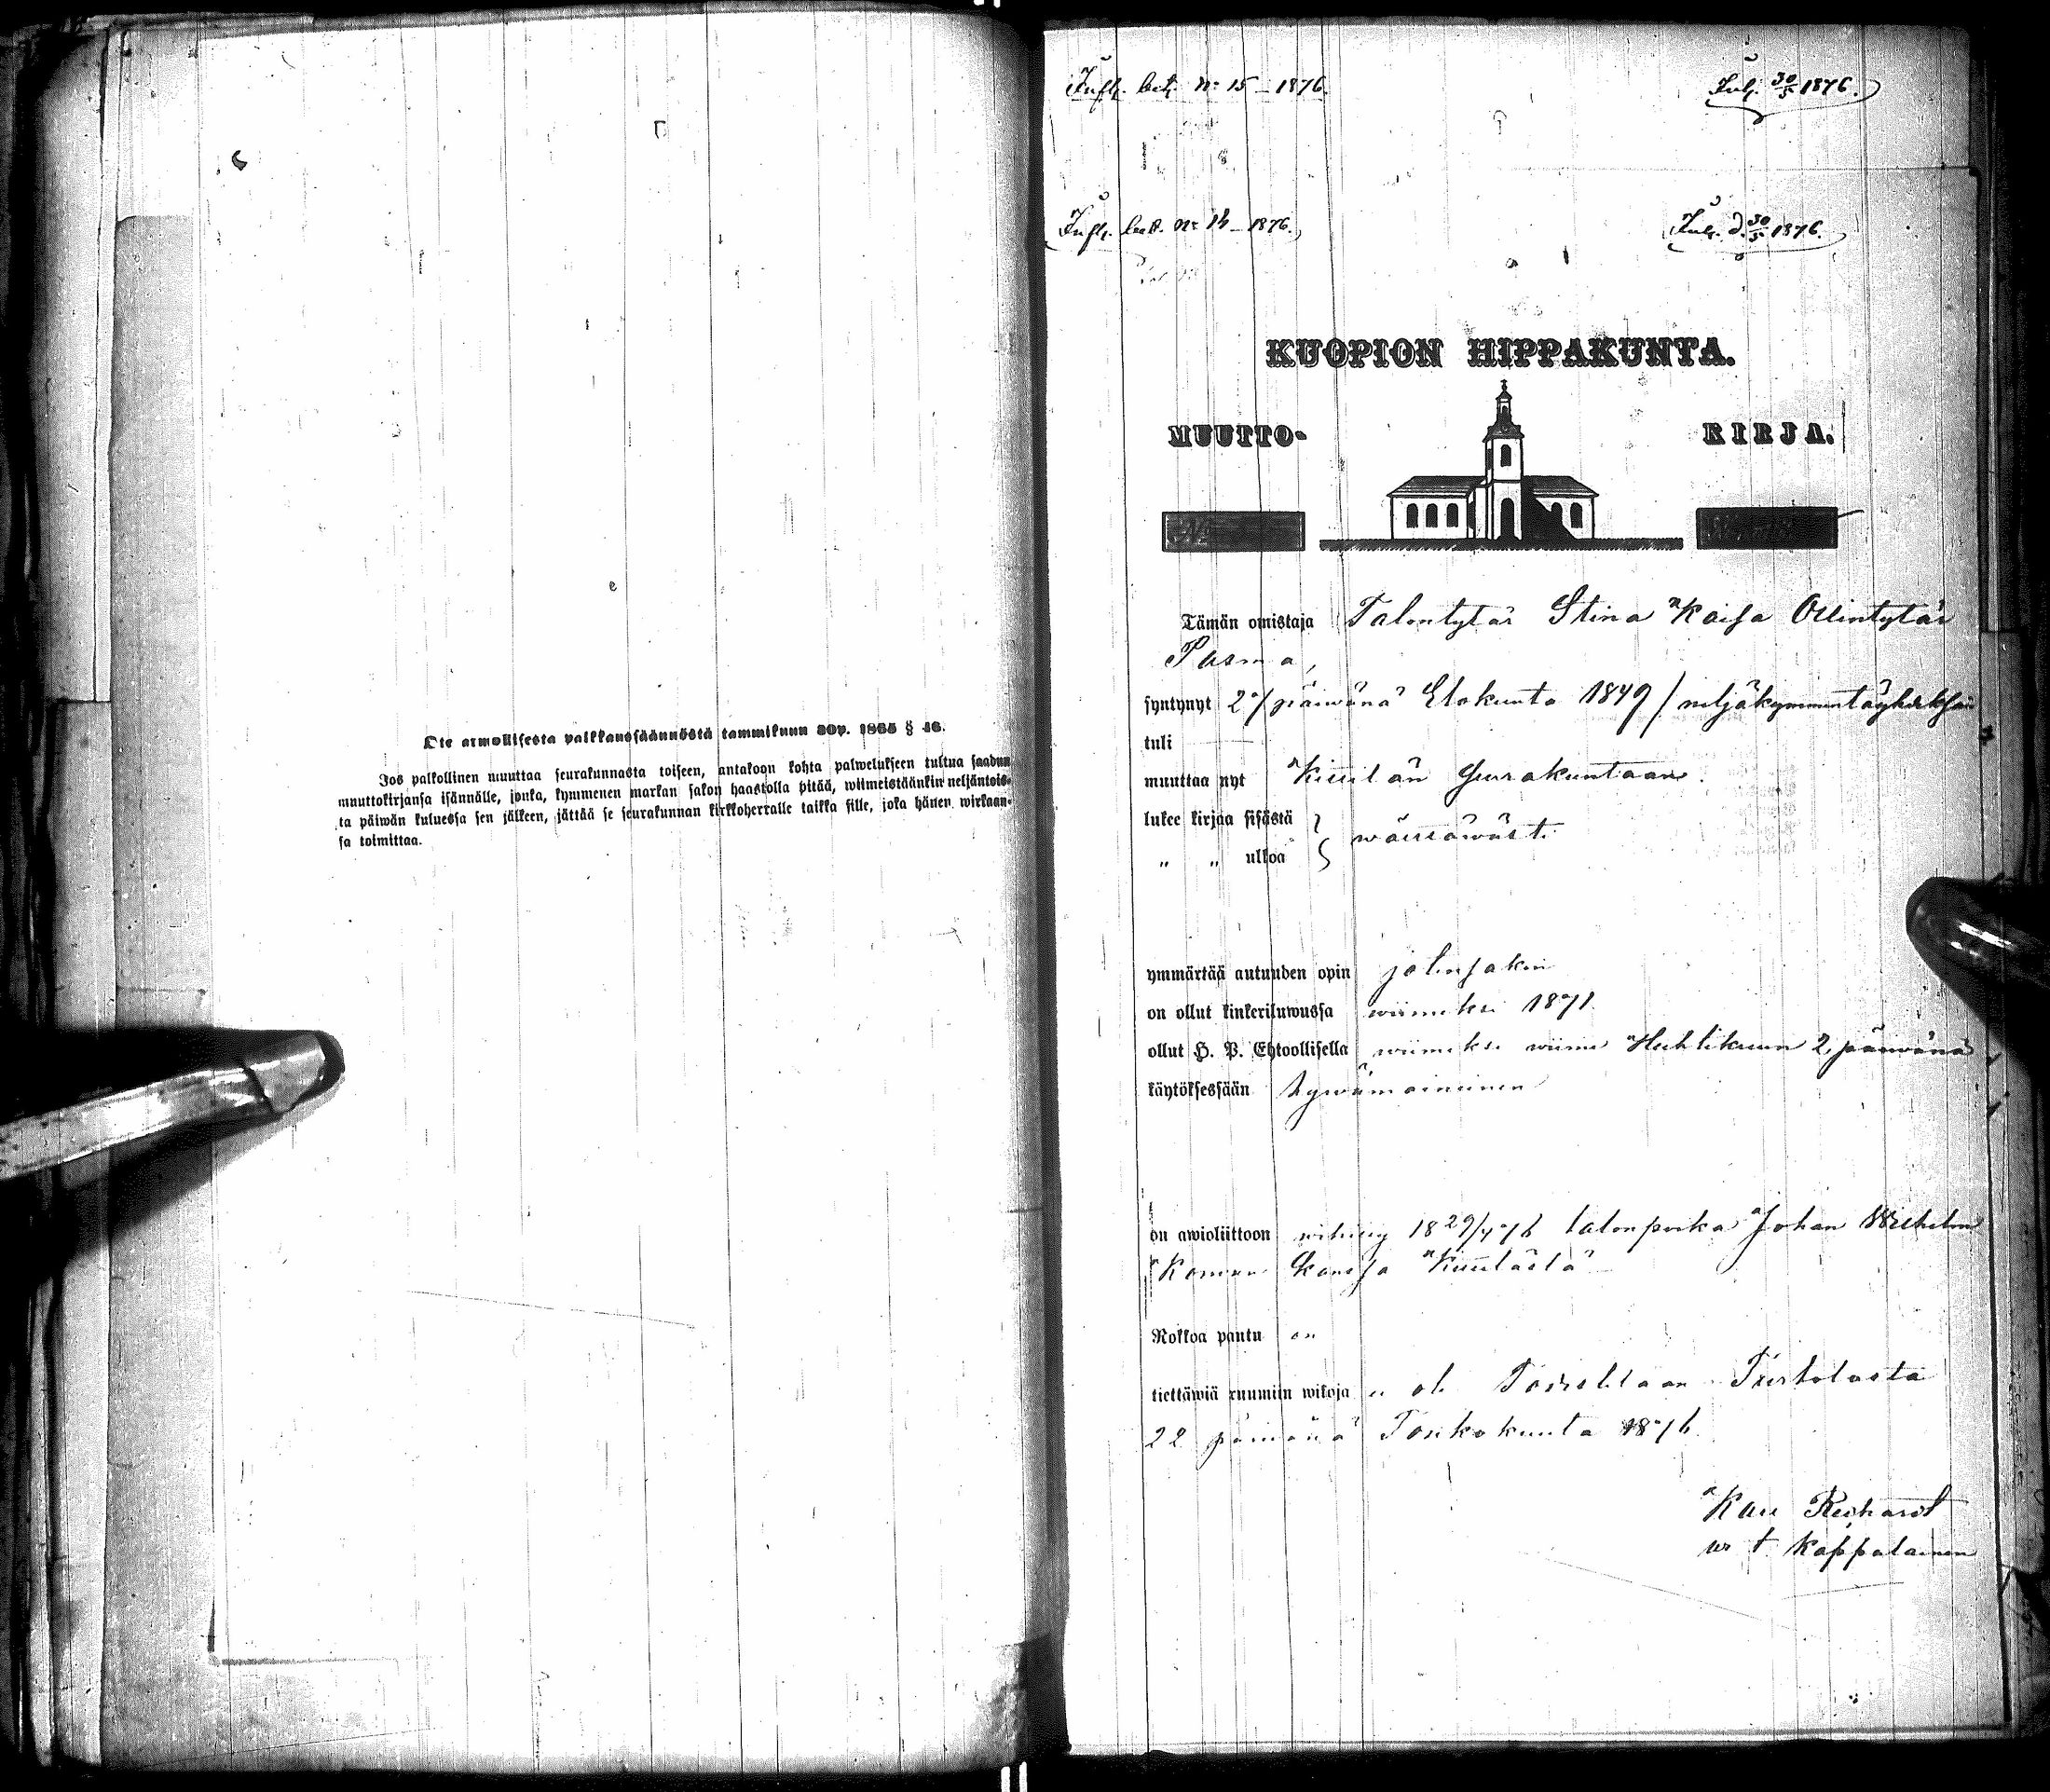 Ote armollisesta palkkaussäännöstä tammikuun 30p. 1865 § 46.
Jos palkollinen muuttaa seurakunnasta toiseen, antakoon kohta palwelukseen tultua saadun
muuttokirjansa isännälle, jonka, kymmenen markan sakon haastolla pitää, wiimeistäänkin neljäntois-
ta päiwän kuluessa sen jälkeen, jättää se seurakunnan kirkkoherralle taikka sille, joka hänen wirkaan-
sa toimittaa.
Infl. bet. No 15 – 1876.
Inl. 30/5 1876.
Infl. bet. No 14 – 1876.
Inl. d. 30/5 1876.
KUOPION HIPPAKUNTA.
MUUTTO- KIRJA.
No
Tämän omistaja Talontytär Stina Kaisa Ollintytär
Pasma,
syntynyt päiwänä Elokuuta 1849 / neljäkymmentäyheksän
tuli
muuttaa nyt seurakuntaan.
lukee kirjaa sisästä
" " ulkoa } wälttäwästi
ymmärtää autuuden opin jotensakin
on ollut kinkeriluwussa wiimeksi 1871
ollut H. P. Ehtoollisella wiimeksi wiime Huhtikuun 2 päiwänä
käytöksessään hywämaineinen
on awioliittoon wihitty 18 29/4 76 talonpoika Johan Wilhelm
kanssa
Rokkoa pantu on
tiettäwiä ruumiin wikoja ei ole Todistetaan Turtolasta
22 päiwänä Toukokuuta 1876
Reichardt
w t kappalainen